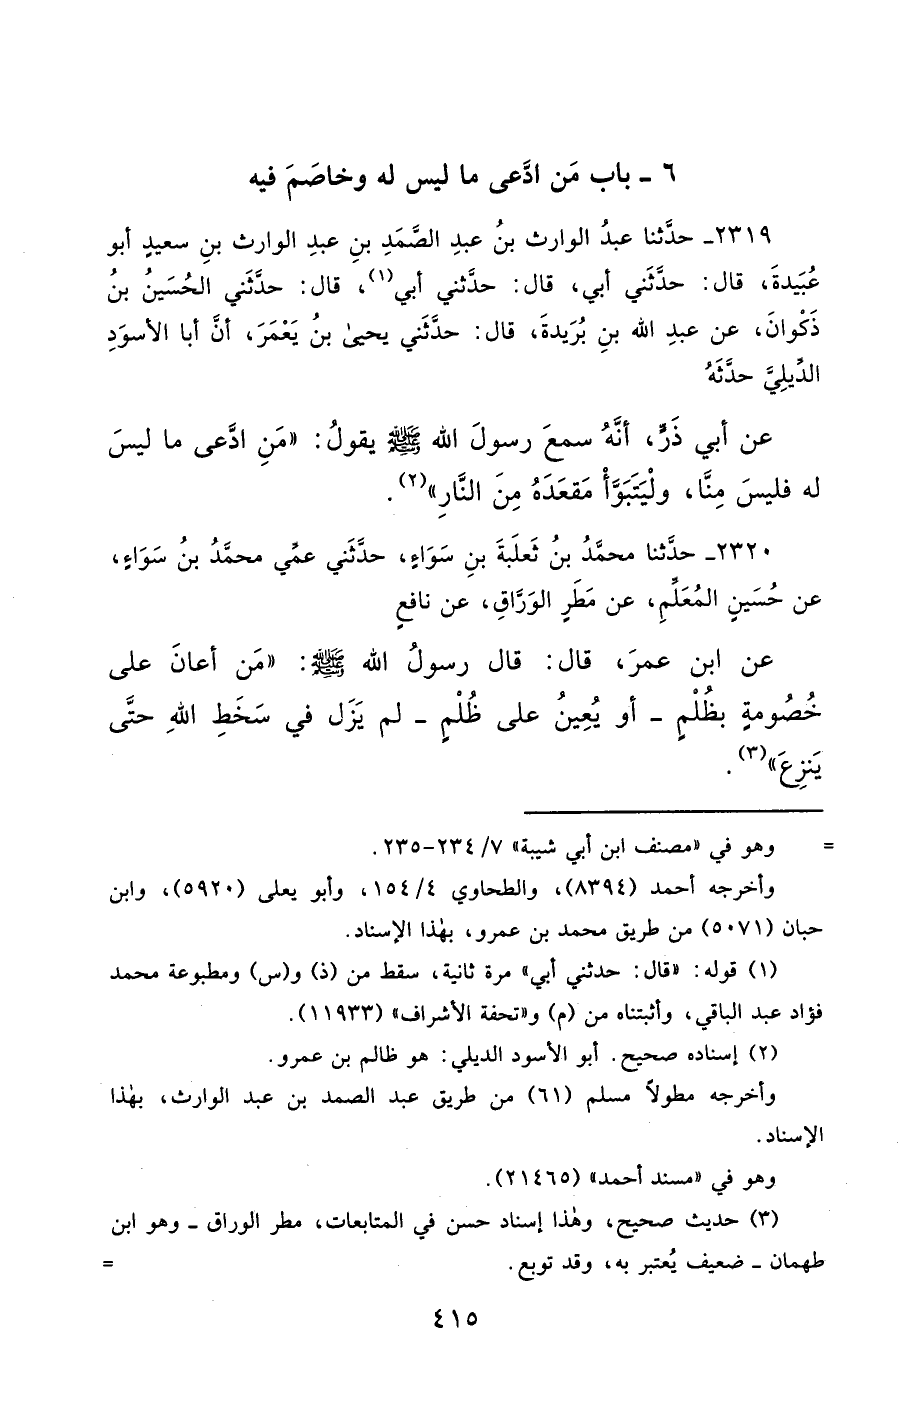 ٦ ـ باب مَن ادَّعى ما ليس له وخاصَمَ فيه
٢٣١٩ـ حدَّثنا عبدُ الوارث بنُ عبدِ الصَّمَدِ بنِ عبدِ الوارث بنِ سعيدٍ أبو
عُبَيدةَ، قال: حدَّثَني أبي، قال: حدَّثني أبي(١)، قال: حدَّثَني الحُسَينُ بنُ
ذَكْوانَ، عن عبدِ الله بنِ بُرَيدةَ، قال: حدَّثَني يحيىٰ بنُ يَعْمَرَ، أنَّ أبا الأسوَدِ
الدِّيلِيَّ حدَّثَهُ
عن أبي ذَرٍّ، أنَّهُ سمعَ رسولَ الله ﷺ يقولُ: «مَنِ ادَّعى ما ليسَ
له فليسَ مِنَّا، ولْيَتَبَوَّأْ مَقعَدَهُ مِنَ النَّارِ»(٢).
٢٣٢٠ـ حدَّثنا محمَّدُ بنُ ثَعلَبةَ بنِ سَوَاءٍ، حدَّثَني عمِّي محمَّدُ بنُ سَوَاءٍ،
عن حُسَينٍ المُعَلِّمِ، عن مَطَرٍ الوَرَّاقِ، عن نافعٍ
عن ابن عمرَ، قال: قال رسولُ الله ﷺ: «مَن أعانَ على
خُصُومةٍ بظُلْمٍ ـ أو يُعِينُ على ظُلْمٍ ـ لم يَزَل في سَخَطِ اللهِ حتَّى
يَنزِعَ»(٣).
= وهو في «مصنف ابن أبي شيبة» ٧/ ٢٣٤-٢٣٥.
وأخرجه أحمد (٨٣٩٤)، والطحاوي ٤/ ١٥٤، وأبو يعلى (٥٩٢٠)، وابن
حبان (٥٠٧١) من طريق محمد بن عمرو، بهٰذا الإسناد.
(١) قوله: «قال: حدثني أبي» مرة ثانية، سقط من (ذ) و(س) ومطبوعة محمد
فؤاد عبد الباقي، وأثبتناه من (م) و«تحفة الأشراف» (١١٩٣٣).
(٢) إسناده صحيح. أبو الأسود الديلي: هو ظالم بن عمرو.
وأخرجه مطولاً مسلم (٦١) من طريق عبد الصمد بن عبد الوارث، بهٰذا
الإسناد.
وهو في «مسند أحمد» (٢١٤٦٥).
(٣) حديث صحيح، وهٰذا إسناد حسن في المتابعات، مطر الوراق ـ وهو ابن
طهمان ـ ضعيف يُعتبر به، وقد توبع. =
٤١٥